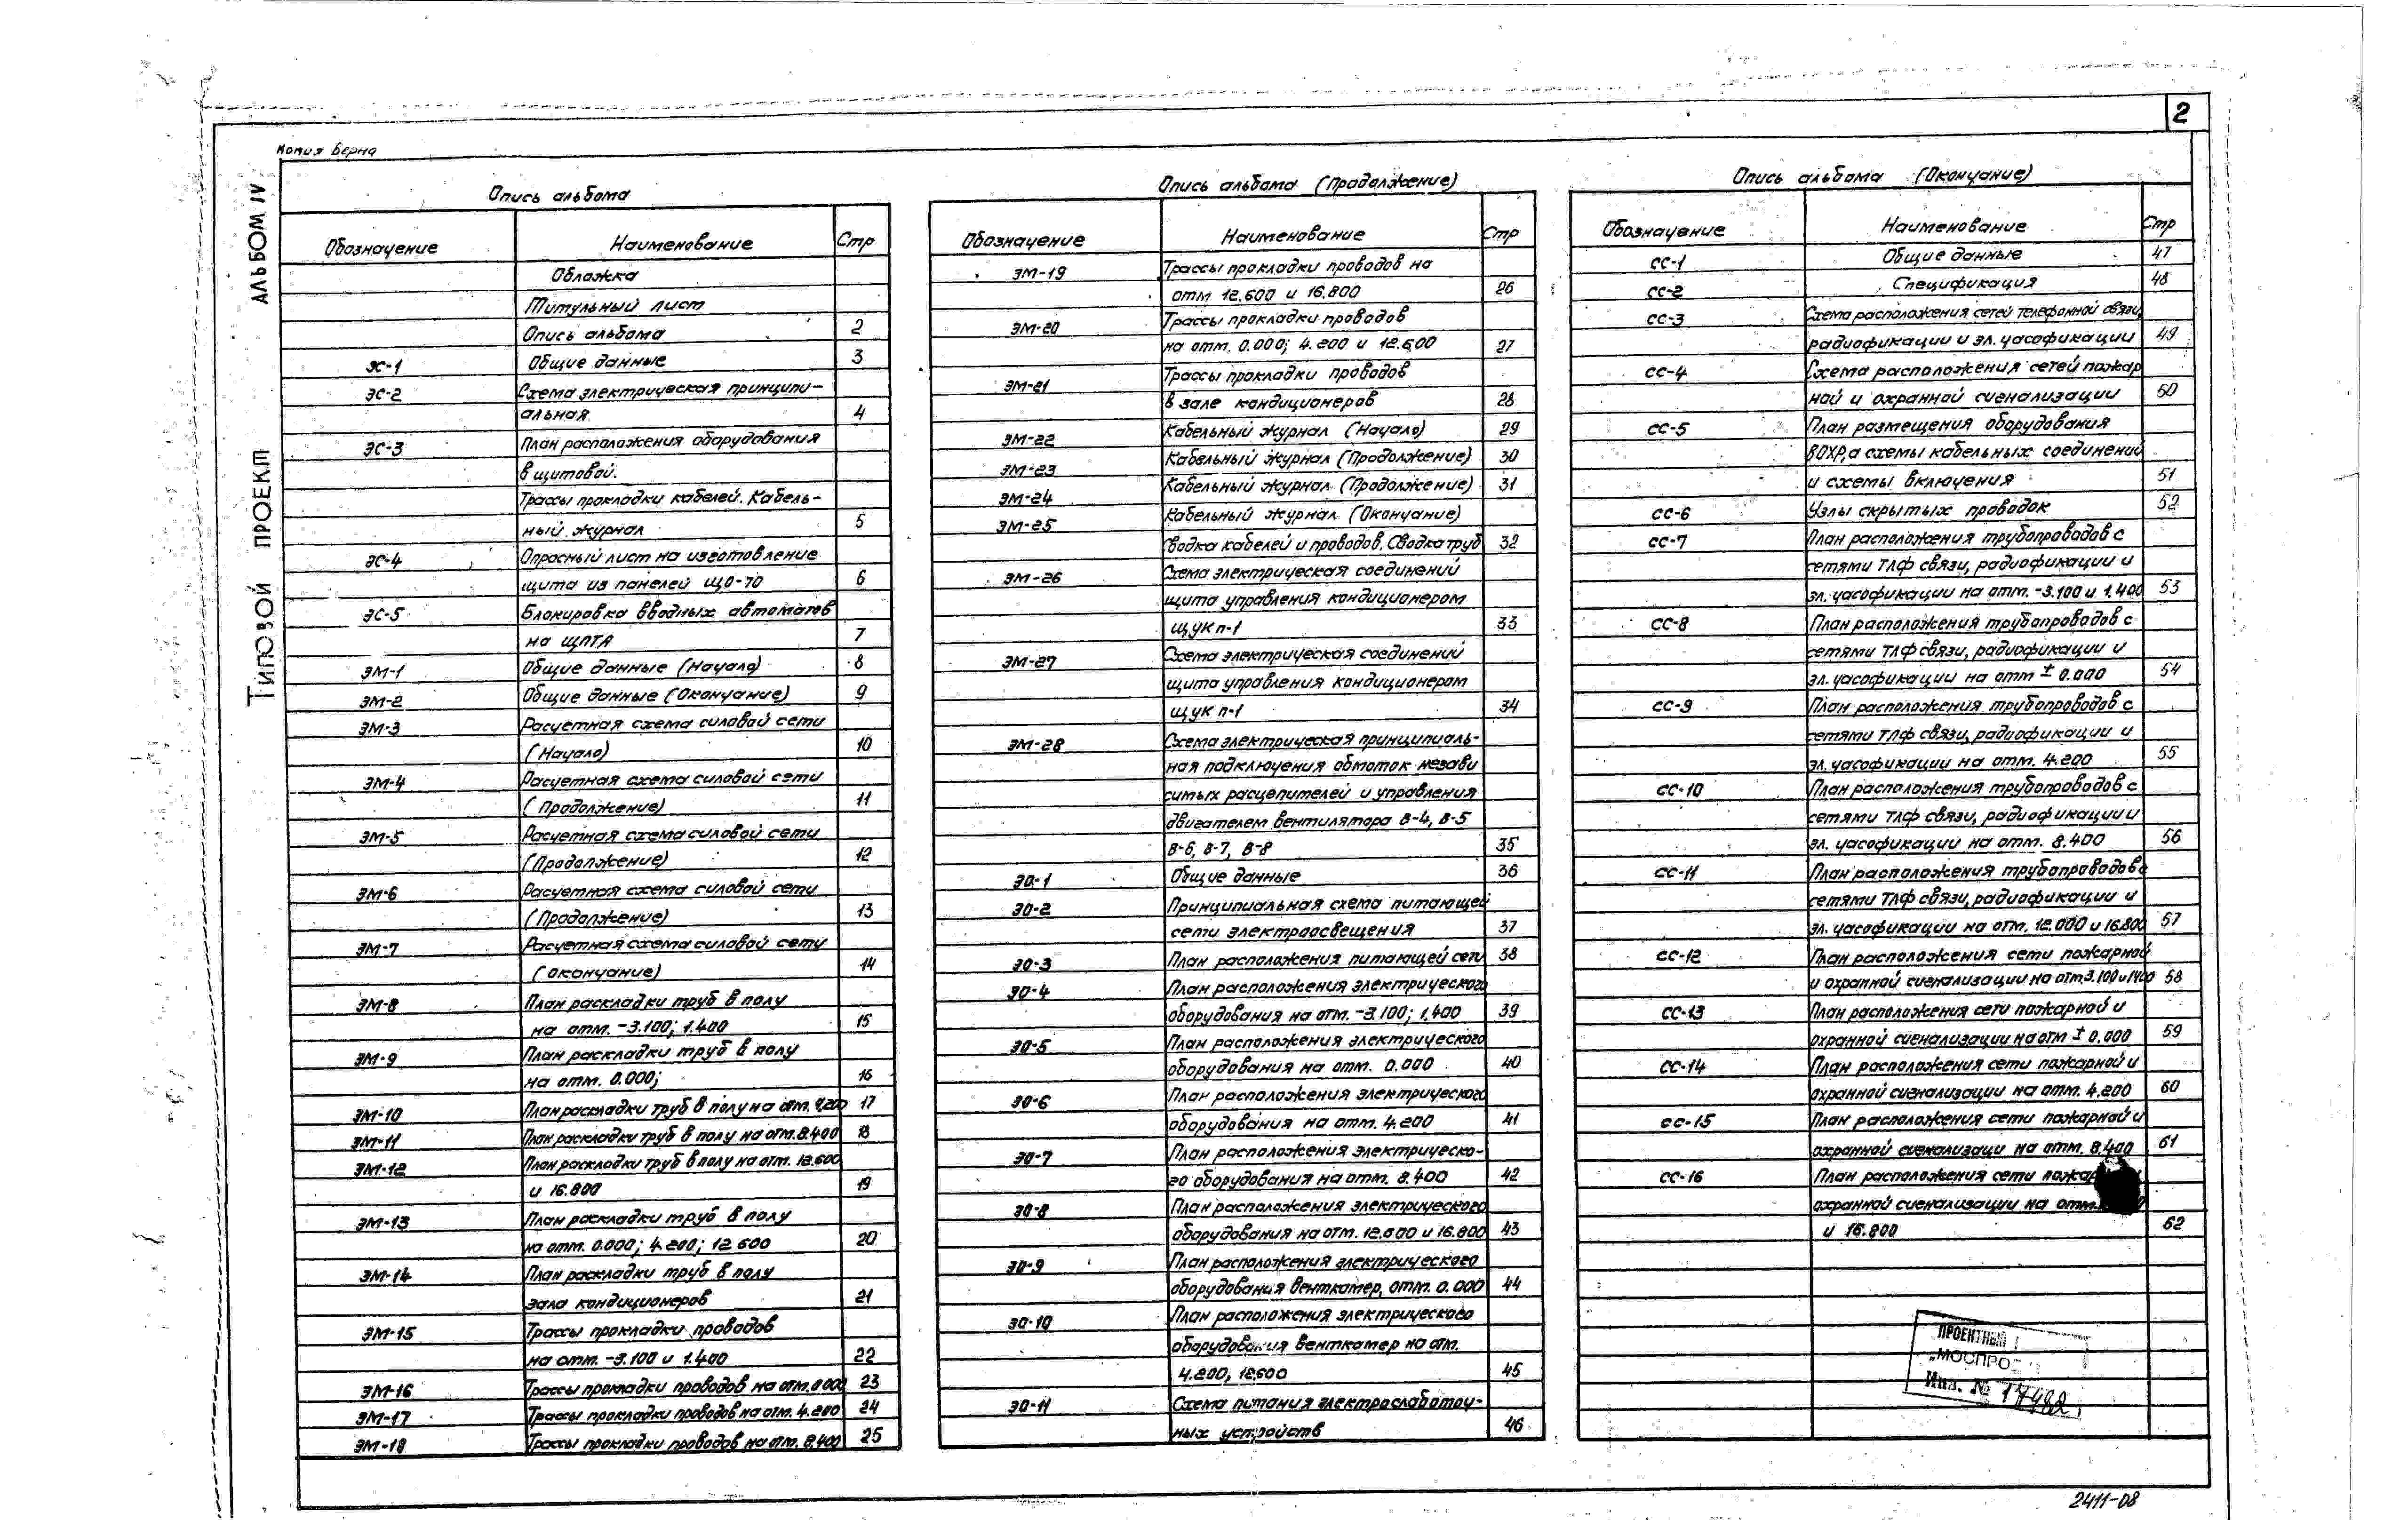 2
Копия верна
АЛЬБОМ IV
ТИПОВОЙ ПРОЕКТ
Опись альбома
Обозначение Наименование Стр
Обложка
Титульный лист
Опись альбома 2
ЭС-1 Общие данные 3
ЭС-2 Схема электрическая принципи-
альная 4
ЭС-3 План расположения оборудования
в щитовой.
Трассы прокладки кабелей. Кабель-
ный журнал 5
ЭС-4 Опросный лист на изготовление
щита из панелей ЩО-70 6
ЭС-5 Блокировка вводных автоматов
на ЩПТА 7
ЭМ-1 Общие данные (Начало) 8
ЭМ-2 Общие данные (Окончание) 9
ЭМ-3 Расчетная схема силовой сети
(Начало) 10
ЭМ-4 Расчетная схема силовой сети
(Продолжение) 11
ЭМ-5 Расчетная схема силовой сети
(Продолжение) 12
ЭМ-6 Расчетная схема силовой сети
(Продолжение) 13
ЭМ-7 Расчетная схема силовой сети
(окончание) 14
ЭМ-8 План раскладки труб в полу
на отм. -3.100; 1.400 15
ЭМ-9 План раскладки труб в полу
на отм. 0.000; 16
ЭМ-10 План раскладки труб в полу на отм. 4.200 17
ЭМ-11 План раскладки труб в полу на отм. 8.400 18
ЭМ-12 План раскладки труб в полу на отм. 12.600
и 16.800 19
ЭМ-13 План раскладки труб в полу
на отм. 0.000; 4.200; 12.600 20
ЭМ-14 План раскладки труб в полу
зала кондиционеров 21
ЭМ-15 Трассы прокладки проводов
на отм. -3.100 и 1.400 22
ЭМ-16 Трассы прокладки проводов на отм. 0.000 23
ЭМ-17 Трассы прокладки проводов на отм. 4.200 24
ЭМ-18 Трассы прокладки проводов на отм. 8.400 25
Опись альбома (Продолжение)
Обозначение Наименование Стр
ЭМ-19 Трассы прокладки проводов на
отм 12.600 и 16.800 26
ЭМ-20 Трассы прокладки проводов
на отм. 0.000; 4.200 и 12.600 27
ЭМ-21 Трассы прокладки проводов
в зале кондиционеров 28
ЭМ-22 Кабельный журнал (Начало) 29
ЭМ-23 Кабельный журнал (Продолжение) 30
ЭМ-24 Кабельный журнал (Продолжение) 31
ЭМ-25 Кабельный журнал (Окончание)
Сводка кабелей и проводов. Сводка труб 32
ЭМ-26 Схема электрическая соединений
щита управления кондиционером
ЩУК п-1 33
ЭМ-27 Схема электрическая соединений
щита управления кондиционером
ЩУК п-1 34
ЭМ-28 Схема электрическая принципиаль-
ная подключения обмоток незави
симых расцепителей и управления
двигателем вентилятора В-4, В-5
В-6, В-7, В-8 35
ЭО-1 Общие данные 36
ЭО-2 Принципиальная схема питающей
сети электроосвещения 37
ЭО-3 План расположения питающей сети 38
ЭО-4 План расположения электрического
оборудования на отм. -3.100; 1.400 39
ЭО-5 План расположения электрического
оборудования на отм. 0.000 40
ЭО-6 План расположения электрического
оборудования на отм. 4.200 41
ЭО-7 План расположения электрическо-
го оборудования на отм. 8.400 42
ЭО-8 План расположения электрического
оборудования на отм. 12.600 и 16.800 43
ЭО-9 План расположения электрического
оборудования венткамер, отм. 0.000 44
ЭО-10 План расположения электрического
оборудования венткамер на отм.
4.200, 12.600 45
ЭО-11 Схема питания электрослаботоч-
ных устройств 46
Опись альбома (Окончание)
Обозначение Наименование Стр
СС-1 Общие данные 47
СС-2 Спецификация 48
СС-3 Схема расположения сетей телефонной связи,
радиофикации и эл. часофикации 49
СС-4 Схема расположения сетей пожар
ной и охранной сигнализации 50
СС-5 План размещения оборудования
ВОХР, а схемы кабельных соединений
и схемы включения 51
СС-6 Узлы скрытых проводок 52
СС-7 План расположения трубопроводов с
сетями ТЛФ связи, радиофикации и
эл. часофикации на отм. -3.100 и 1.400 53
СС-8 План расположения трубопроводов с
сетями ТЛФ связи, радиофикации и
эл. часофикации на отм ± 0.000 54
СС-9 План расположения трубопроводов с
сетями ТЛФ связи, радиофикации и
эл. часофикации на отм. 4.200 55
СС-10 План расположения трубопроводов с
сетями ТЛФ связи, радиофикации и
эл. часофикации на отм. 8.400 56
СС-11 План расположения трубопроводов с
сетями ТЛФ связи, радиофикации и
эл. часофикации на отм. 12.000 и 16.800 57
СС-12 План расположения сети пожарной
и охранной сигнализации на отм 3.100 и 1.400 58
СС-13 План расположения сети пожарной и
охранной сигнализации на отм ± 0.000 59
СС-14 План расположения сети пожарной и
охранной сигнализации на отм. 4.200 60
СС-15 План расположения сети пожарной и
охранной сигнализаци на отм. 8.400 61
СС-16 План расположения сети
охранной сигнализации на отм.
и 16.800 62
ПРОЕКТНЫЙ
"МОСПРО
Инв. № 17482
2411-08